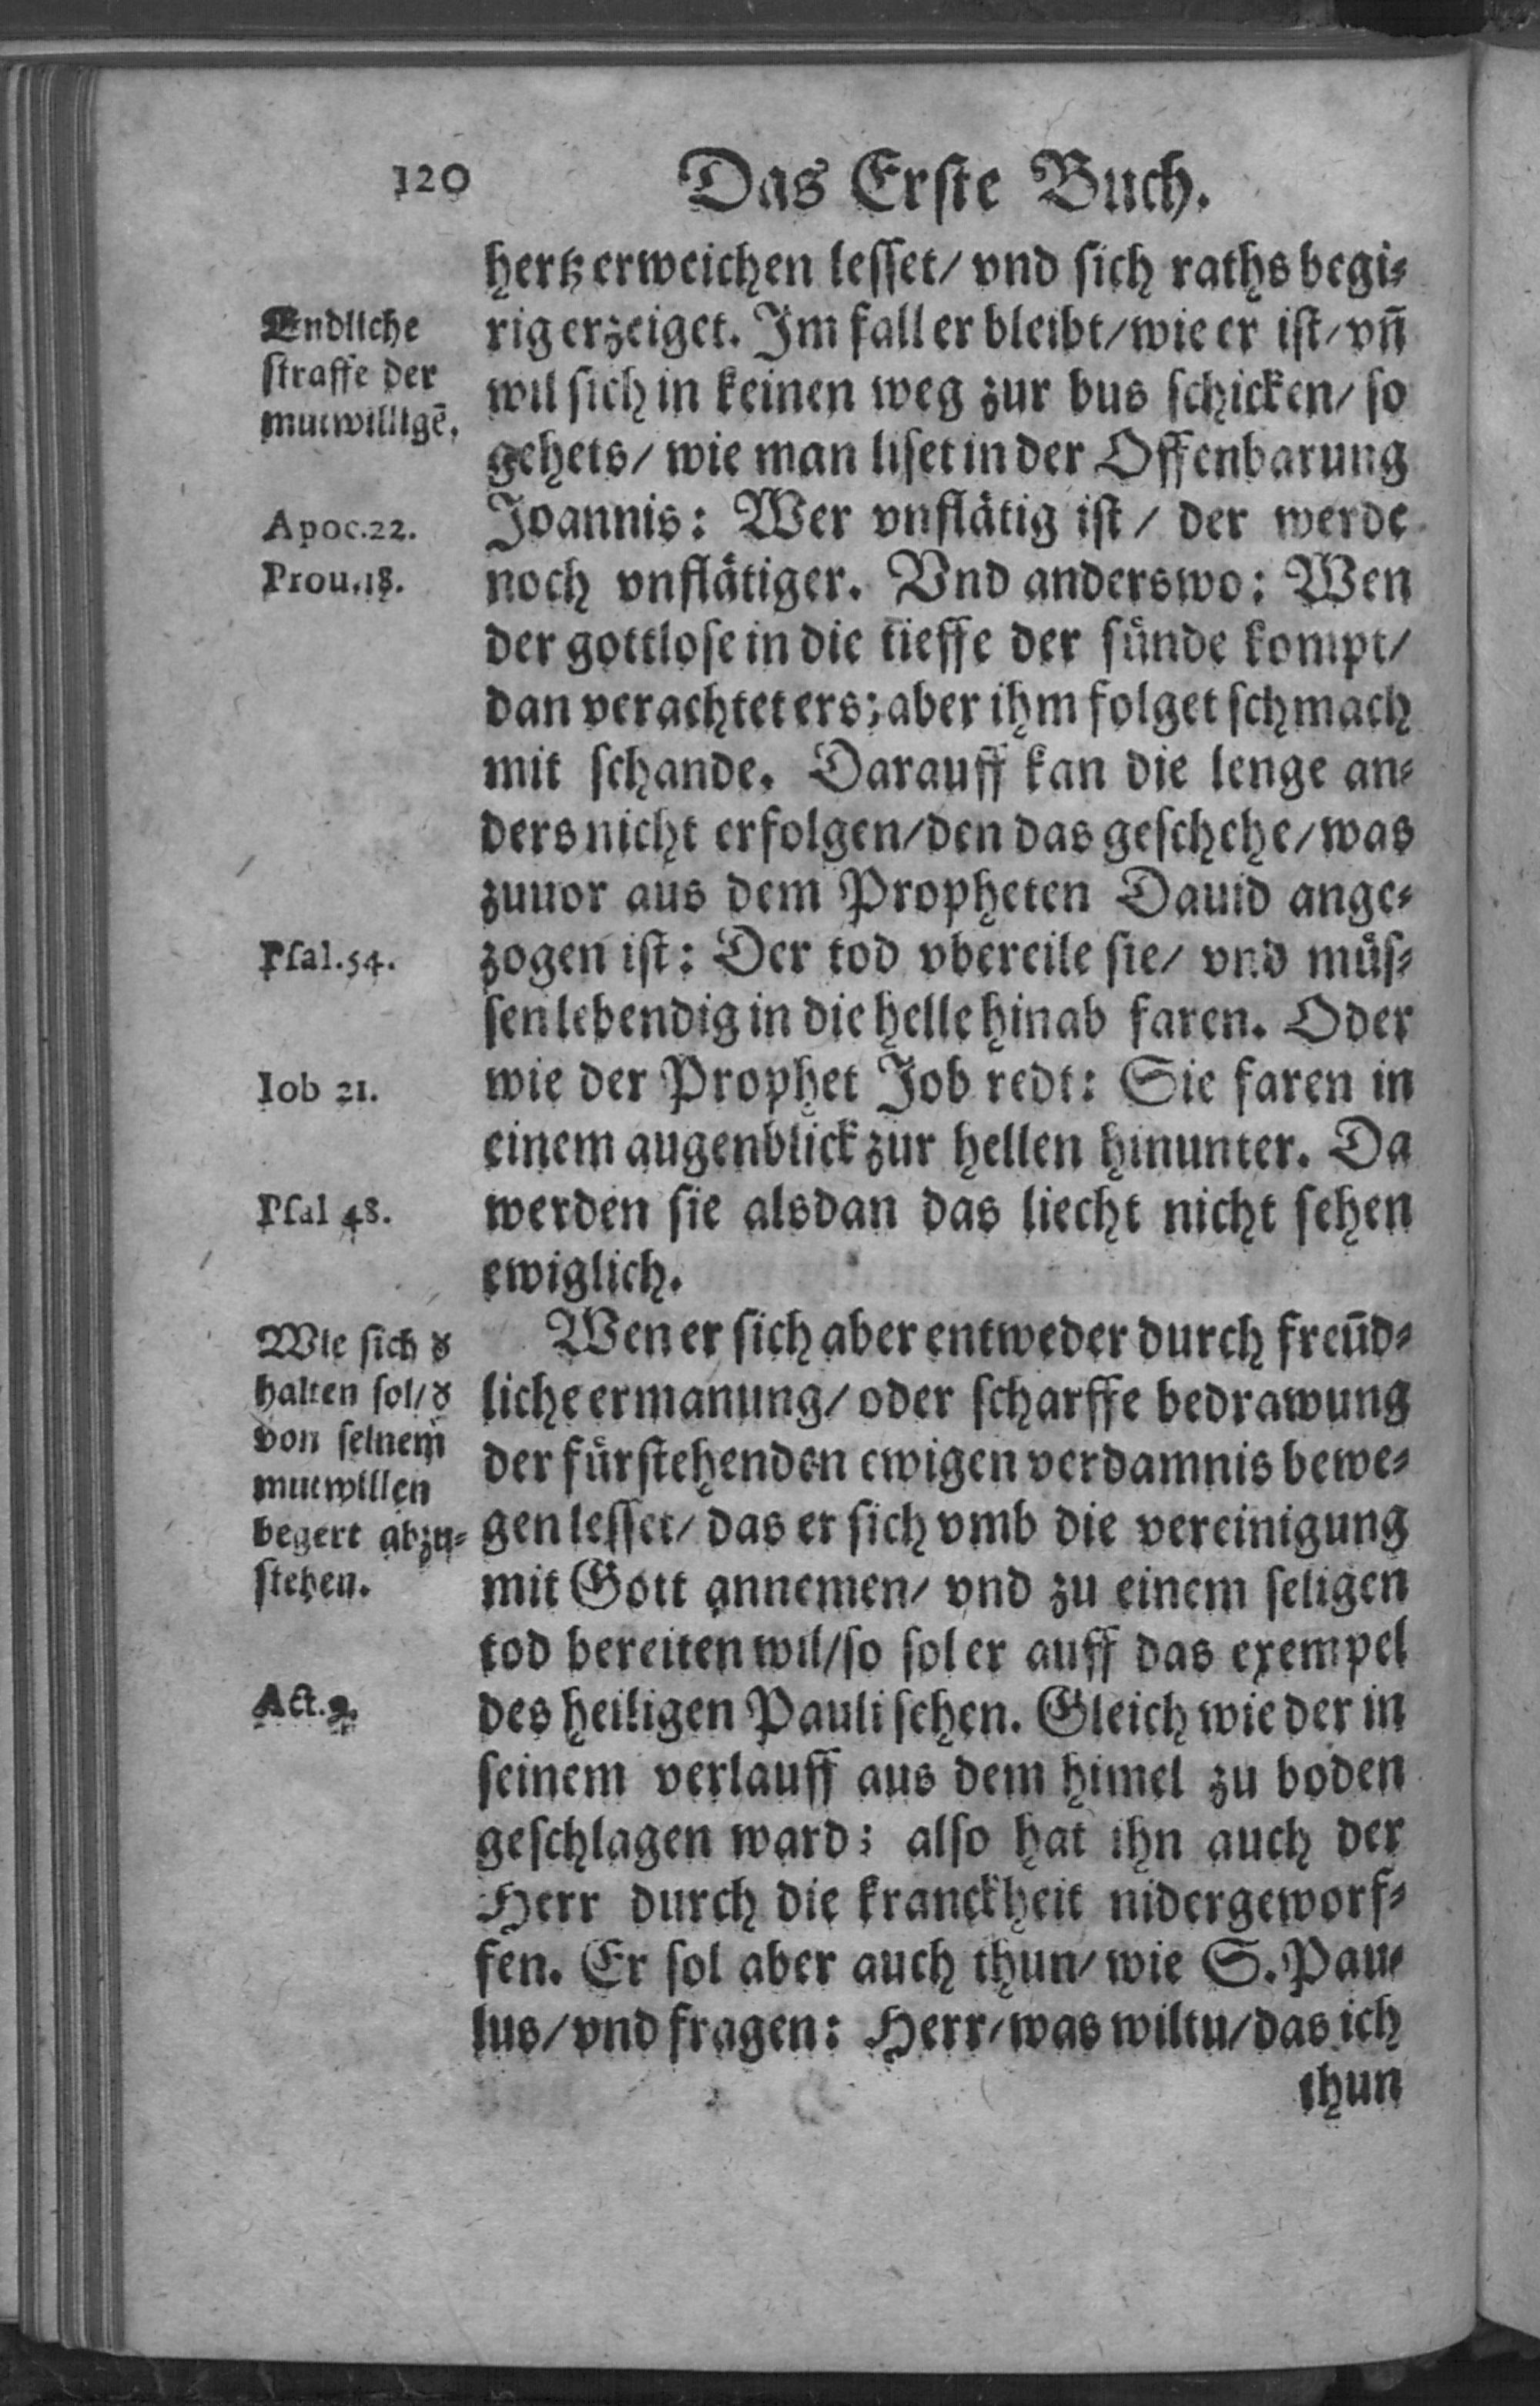 120 Das Erste Buch.
hertz erweichen lesset/ vnd sich raths begi-
rig erzeiget. Im fall er bleibt/ wie er ist/ vn̄
wil sich in keinen weg zur bus schicken/ so
gehets/ wie man liset in der Offenbarung
Joannis: Wer vnflätig ist/ der werde
noch vnflätiger. Vnd anderswo: Wen
der gottlose in die tieffe der sünde kompt/
dan verachtet ers; aber ihm folget schmach
mit schande. Darauff kan die lenge an-
ders nicht erfolgen/ den das geschehe/ was
zuuor aus dem Propheten Dauid ange-
zogen ist: Der tod vbereile sie/ vnd müs-
sen lebendig in die helle hinab faren. Oder
wie der Prophet Job redt: Sie faren in
einem augenblick zur hellen hinunter. Da
werden sie alsdan das liecht nicht sehen
ewiglich.
Wen er sich aber entweder durch freūd-
liche ermanung/ oder scharffe bedrawung
der fürstehenden ewigen verdamnis bewe-
gen lesset/ das er sich vmb die vereinigung
mit Gott annemen/ vnd zu einem seligen
tod bereiten wil/ so sol er auff das exempel
des heiligen Pauli sehen. Gleich wie der in
seinem verlauff aus dem himel zu boden
geschlagen ward; also hat ihn auch der
Herr durch die kranckheit nidergeworf-
fen. Er sol aber auch thun/ wie S. Pau-
lus/ vnd fragen: Herr/ was wiltu/ das ich
thun
Endliche
straffe der
mutwilligē.
Apoc.22.
Prou.18.
Psal.54.
Iob 21.
Psal 48.
Wie sich d̕
halten sol/ d̕
von seinem
mutwillen
begert abzu-
stehen.
Act.9.